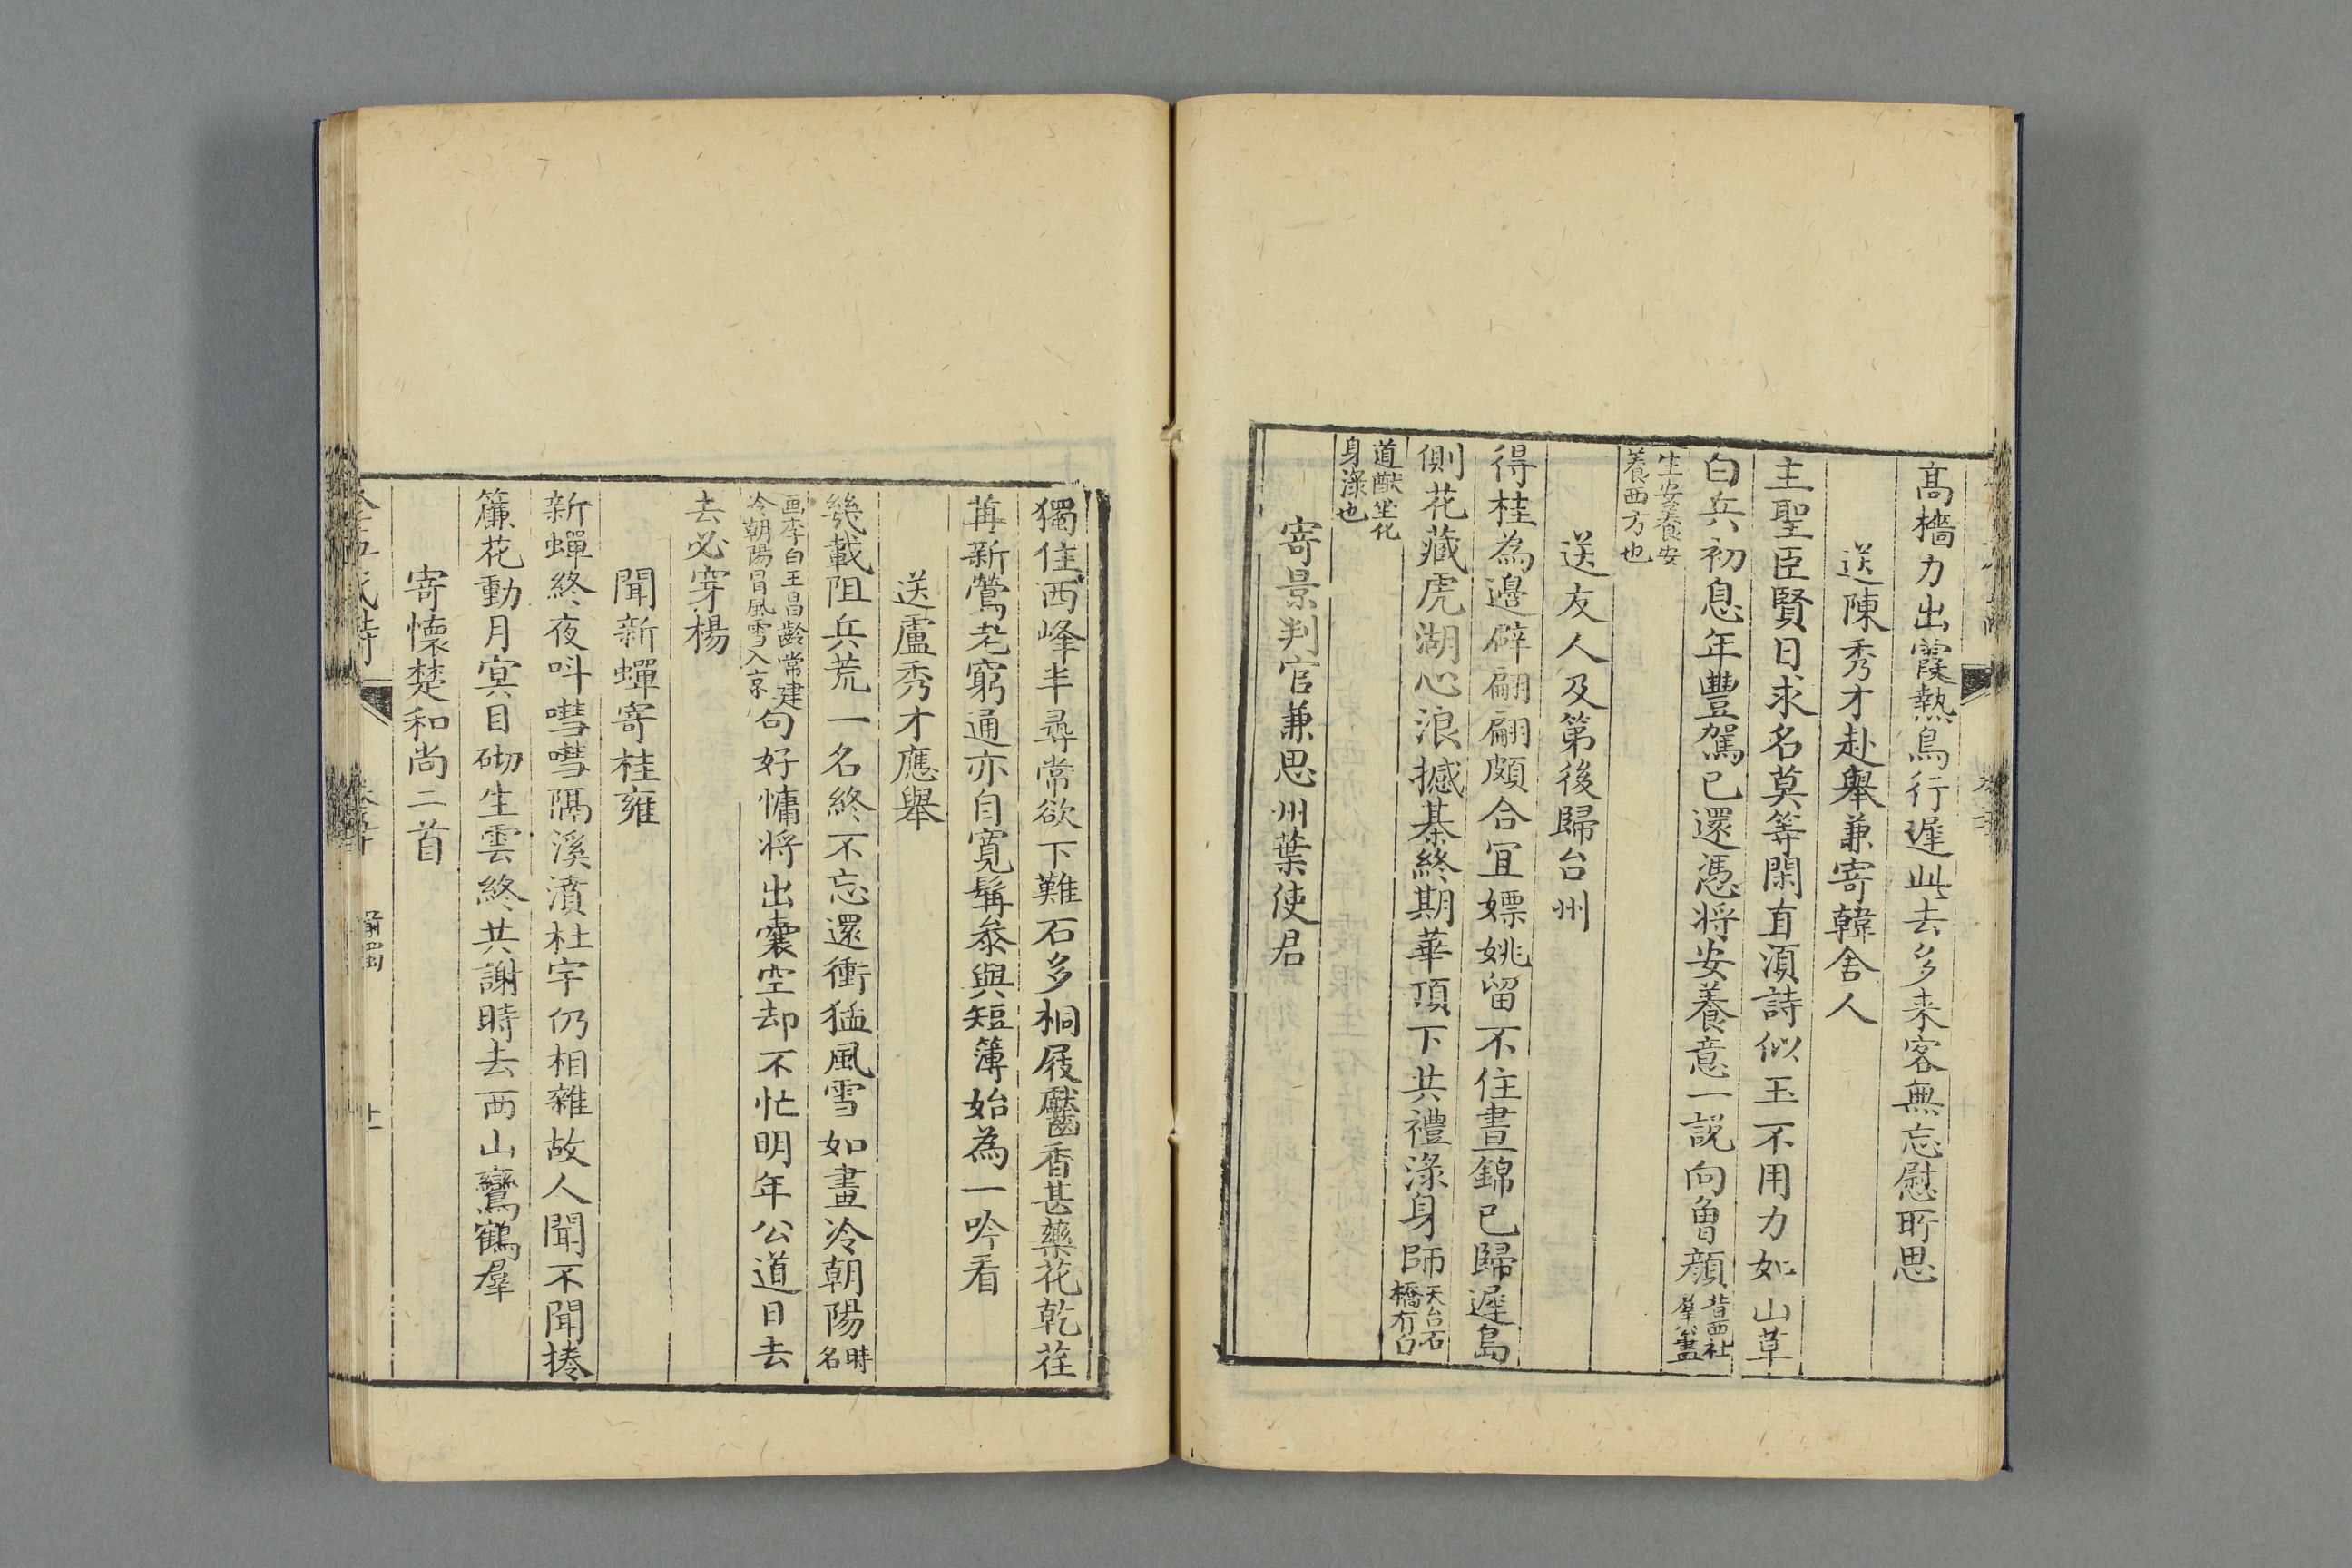 高檣力出霞熱鳥行遲此去多来客無忘慰所思
送陳秀才赴舉兼寄韓舍人
主聖臣賢日求名莫等閑直須詩似玉不用力如山草
白兵初息年豐駕已還憑將安養意一說向曾顔昔西社羣公盡
生安養安養西方也
送友人及第後歸台州
得桂為邊辟翩翩頗合宜嫖姚留不住晝錦已歸遲島
側花藏虎湖心浪撼棊終期華頂下共禮渌身師天台石橋有白
道猷坐化身渌也
寄景判官兼思州葉使君
獨住西峰半尋常欲下難石多桐屐齾香甚藥花乾荏
苒新鶯老窮通亦自寬髯叅與短簿始為一吟看
送盧秀才應舉
幾載阻兵荒一名終不忘還衝猛風雪如畫冷朝陽時名
画李白王昌齡常建冷朝陽冒風雪入京句好慵将出囊空却不忙明年公道日去
去必穿楊
聞新蟬寄桂雍
新蟬終夜呌嘒嘒隔溪濆杜宇仍相雜故人聞不聞捲
簾花動月冥目砌生雲終共謝時去西山鸞鶴羣
寄懷楚和尚二首